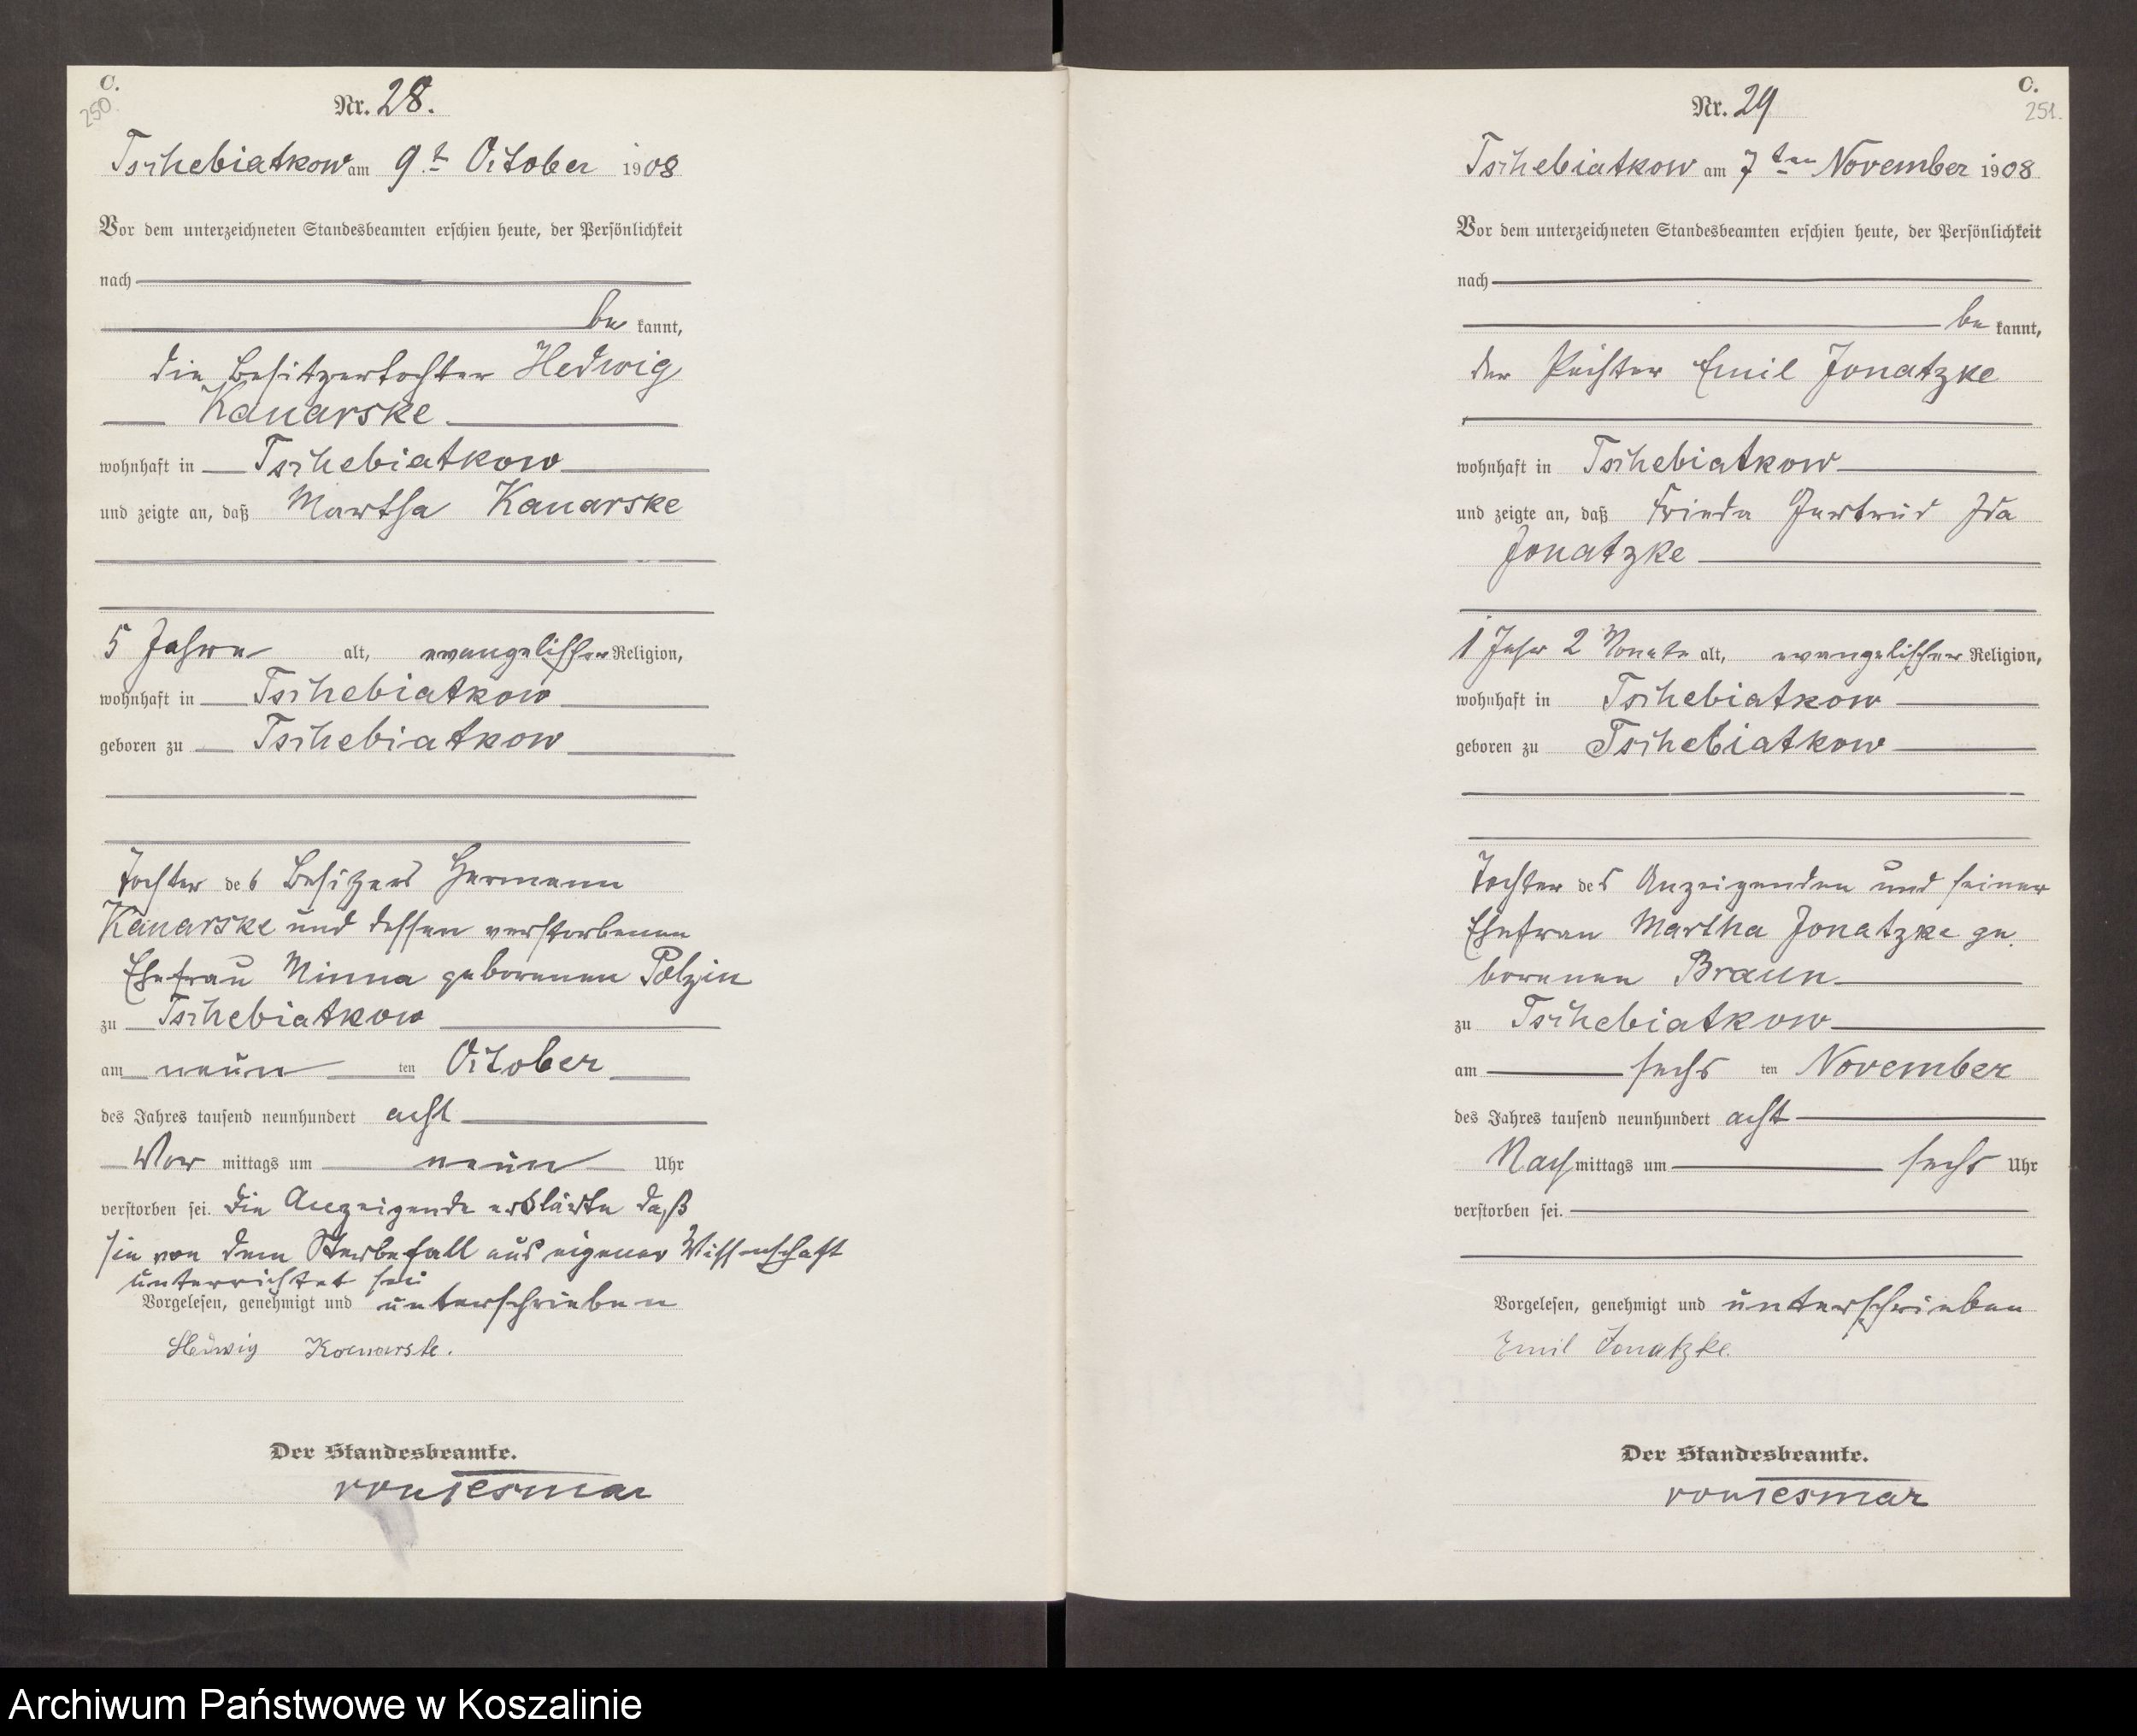 C.
250.
Nr. 28.
Tschebiatkow am 9.t October 1908
Vor dem unterzeichneten Standesbeamten erschien heute, der Persönlichkeit
nach
be kannt,
die Besitzertochter Hedwig
Kanarske
wohnhaft in Tschebiatkow
und zeigte an, daß Martha Kanarske
5 Jahre alt, evangelischer Religion,
wohnhaft in Tschebiatkow
geboren zu Tschebiatkow
Tochter des Besitzers Hermann
Kanarske und dessen verstorbenen
Ehefrau Minna geborenen Polzin
zu Tschebiatkow
am neun ten October
des Jahres tausend neunhundert acht
Vor mittags um neun Uhr
verstorben sei. Die Anzeigende erklärte daß
sie von dem Sterbefall aus eigener Wissenschaft
unterrichtet sei
Vorgelesen, genehmigt und unterschrieben
Hedwig Kanarske.
Der Standesbeamte.
von Tesmar
C.
251.
Nr. 29
Tschebiatkow am 7ten November 1908
Vor dem unterzeichneten Standesbeamten erschien heute, der Persönlichkeit
nach
be kannt,
der Pächter Emil Jonatzke
wohnhaft in Tschebiatkow
und zeigte an, daß Frieda Gertrud Ida
Jonatzke
1 Jahr 2 Monate alt, evangelischer Religion,
wohnhaft in Tschebiatkow
geboren zu Tschebiatkow
Tochter des Anzeigenden und seiner
Ehefrau Martha Jonatzke ge
borenen Braun
zu Tschebiatkow
am sechs ten November
des Jahres tausend neunhundert acht
Nach mittags um sechs Uhr
verstorben sei.
Vorgelesen, genehmigt und unterschrieben
Emil Jonatzke.
Der Standesbeamte.
von Tesmar
Archiwum Państwowe w Koszalinie